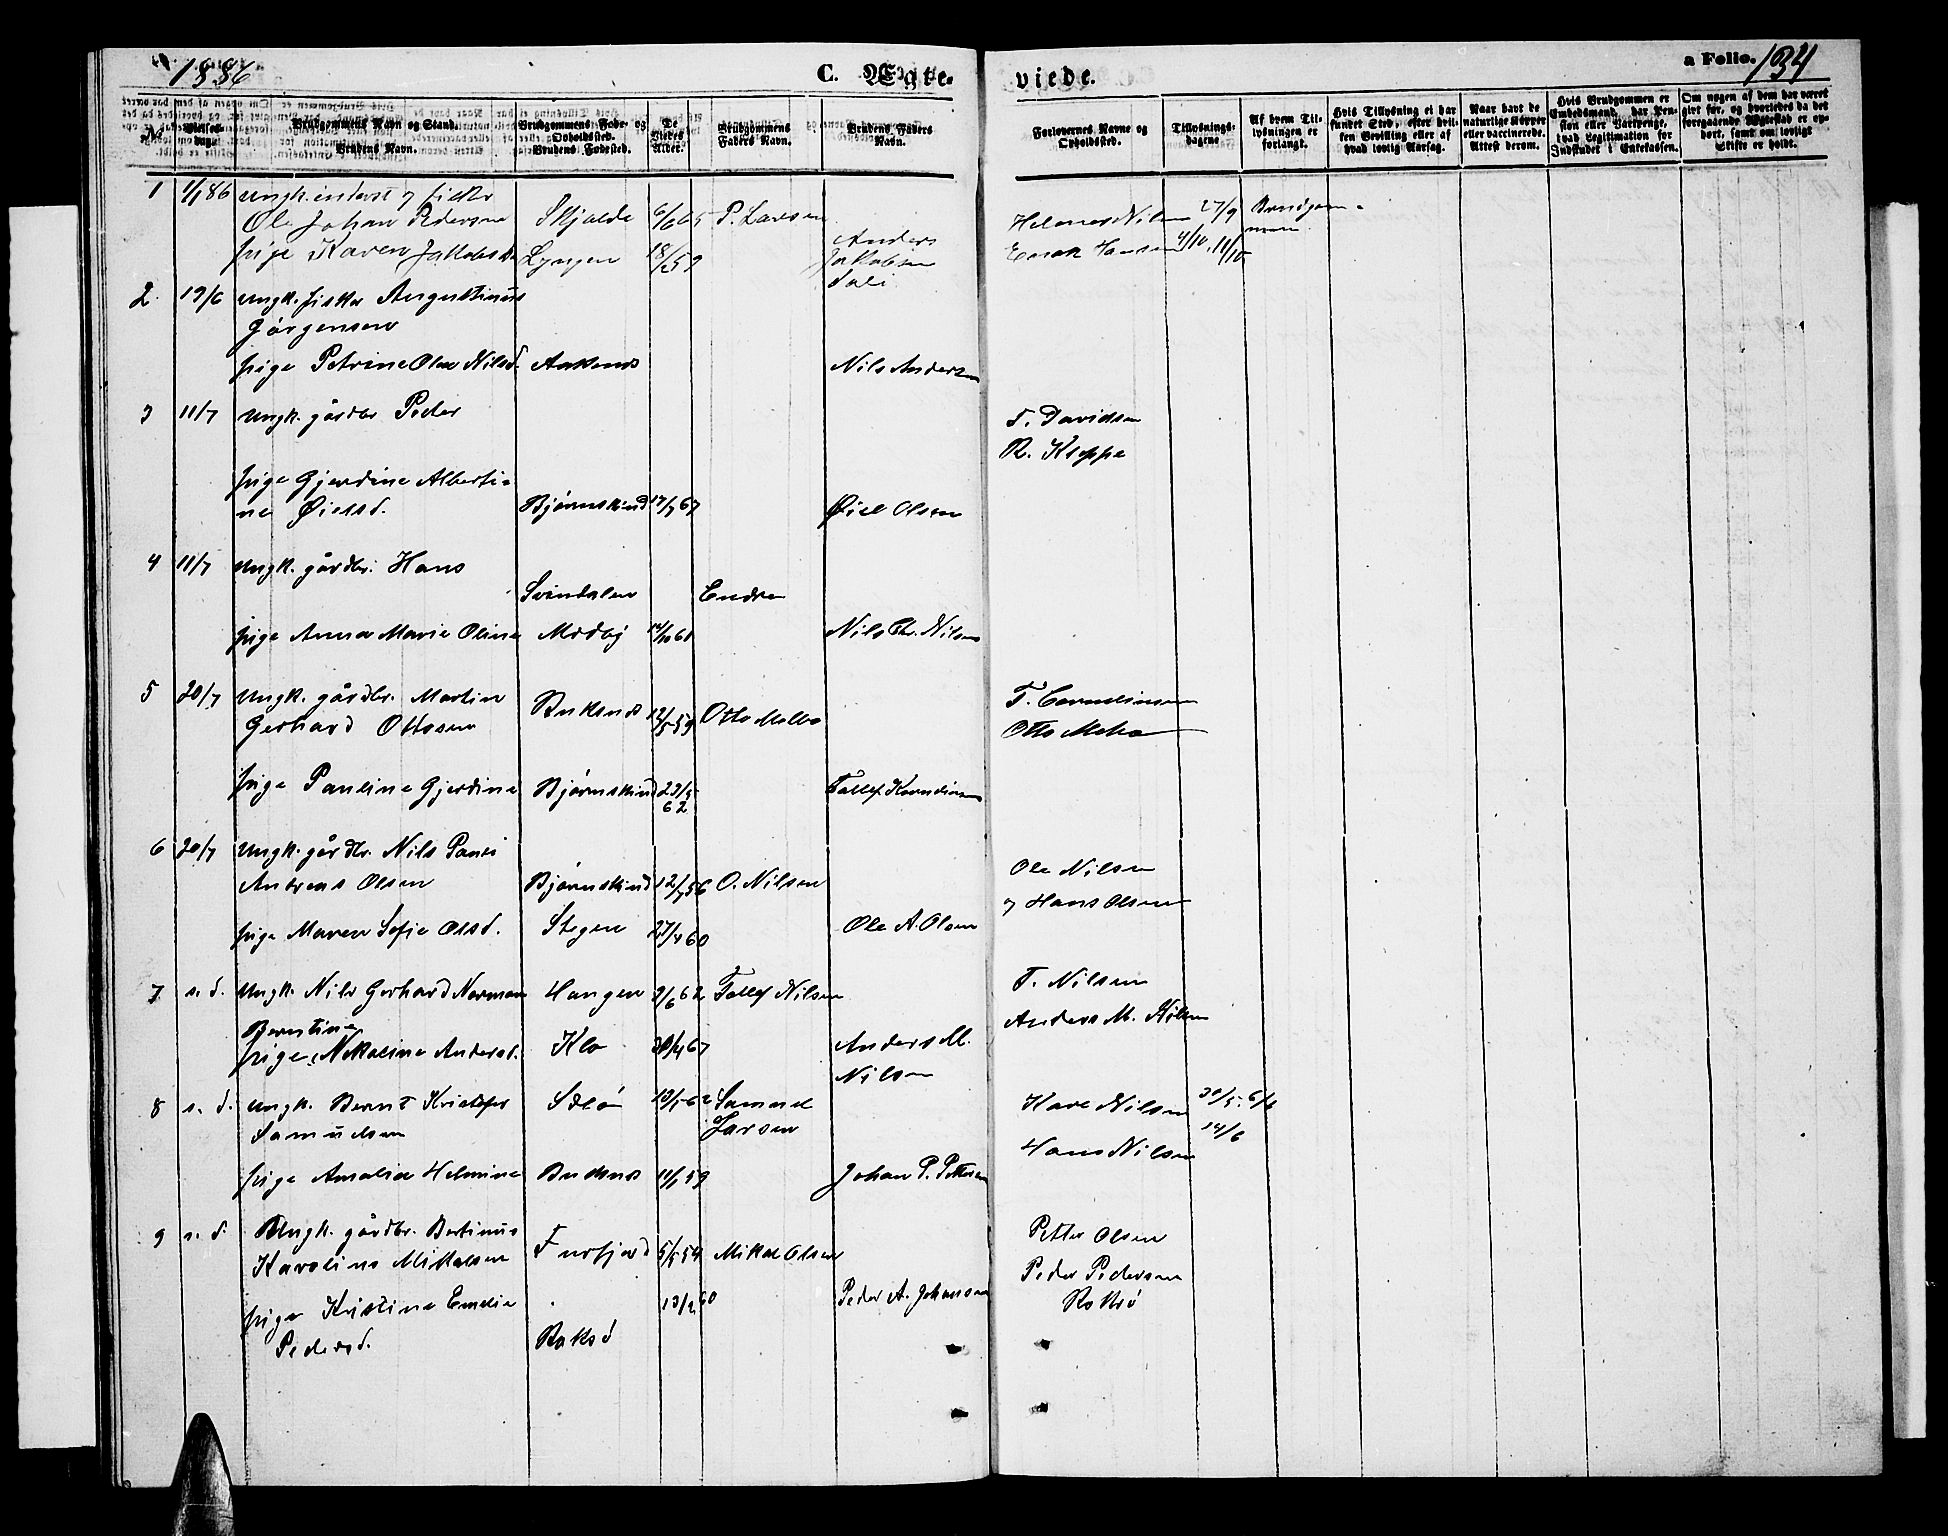 1886
C. Ægte-
viede.
a Folio. 134
№
Vielses-
dag.
Brudgommens Navn og Stand.
Brudens Navn.
Brudgommens Føde- og
Opholdssted.
Brudens Fødested.
De
Viedes
Alder.
Brudgommens
Faders Navn.
Brudens Faders
Navn.
Forlovernes Navne og
Opholdssted.
Tillysnings-
dagene
Af hvem Til-
lysningen er
forlangt.
Hvis Tillysning ei har
fundet Sted, efter hvil-
ken Bevilling eller af
hvad lovlig Aarsag.
Naar havt de
naturlige Kopper
eller vaccinerede.
Attest derom.
Hvis Brudgommen er
Embedsmand, har Pen-
sion eller Vartpenge,
hvad Legitimation for
Indskudet i Enkekassen.
Om nogen af dem har været
gift før, og hvorledes da det
foregaaende Ægteskab er op-
hørt, samt om lovligt
Skifte er holdt.
1 1/1 86 Ungk. inderst og fisker
Ole Johan Pedersen Skjalde 6/6 65 P. Larsen Helmer Nilsen 27/9 Brudgom-
men
pige Karen Jakobsd. Lyngen 18/ 59 Anders
Jakobsen
Enok Hansen 4/10, 11/10
2. 19/6 Ungk. fisker Augustinus
Görgensen
pige Petrine Olea Nilsd. Nils Andersen
3 11/7 Ungk. gårdbr. Peder T. Davidsen
R. Kleppe
pige Gjerdine Alberti-
ne Øielsd. Bjørnskind 17/7 67 Øiel Olsen
4 11/7 Ungk. gårdbr. Hans
Svindalen Endre
pige Anna Marie Oline Medby 14/10 61 Nils Chr. Nilsen
5 20/7 Ungk. gårdbr. Martin
Gerhard Ottosen Buksnes 12/5 59 Otto Melbo T. Cornelinsen
Otto Melbo
pige Pauline Gjerdine Bjørnskind 23/5
62 Tollef Kornelius
6 20/7 Ungk. gårdbr. Nils Pauli
Andreas Olsen Bjørnskind 12/7 56 O. Nilsen Ole Nilsen
og Hans Olsen
pige Maren Sofie Olsd. Stegen 27/4 60 Ole A. Olsen
7 s. d. Ungk. Nils Gerhard Norman Haugen 9/6 62 Tollef Nilsen T. Nilsen
Berntine
pige Nikoline Andersd. Klo 30/4 67 Anders M.
Nilsen
Anders M. Nilsen
8 s. d. Ungk. Bernt Kristofer
Samuelsen 62 Samuel
Larsen Hans Nilsen 14/6
pige Amalia Helmine Buksnes 11/1 59 Johan P. Pettersen
9 s. d. Ungk. gårdbr. Bertinus
Karolius Mikalsen Forfjord 5/5 54 Mikal Olsen Petter Olsen
Peder Pedersen
Roksø
pige Kristine Emelie
Pedersd. Roksø 13/2 60 Peder A. Johansen